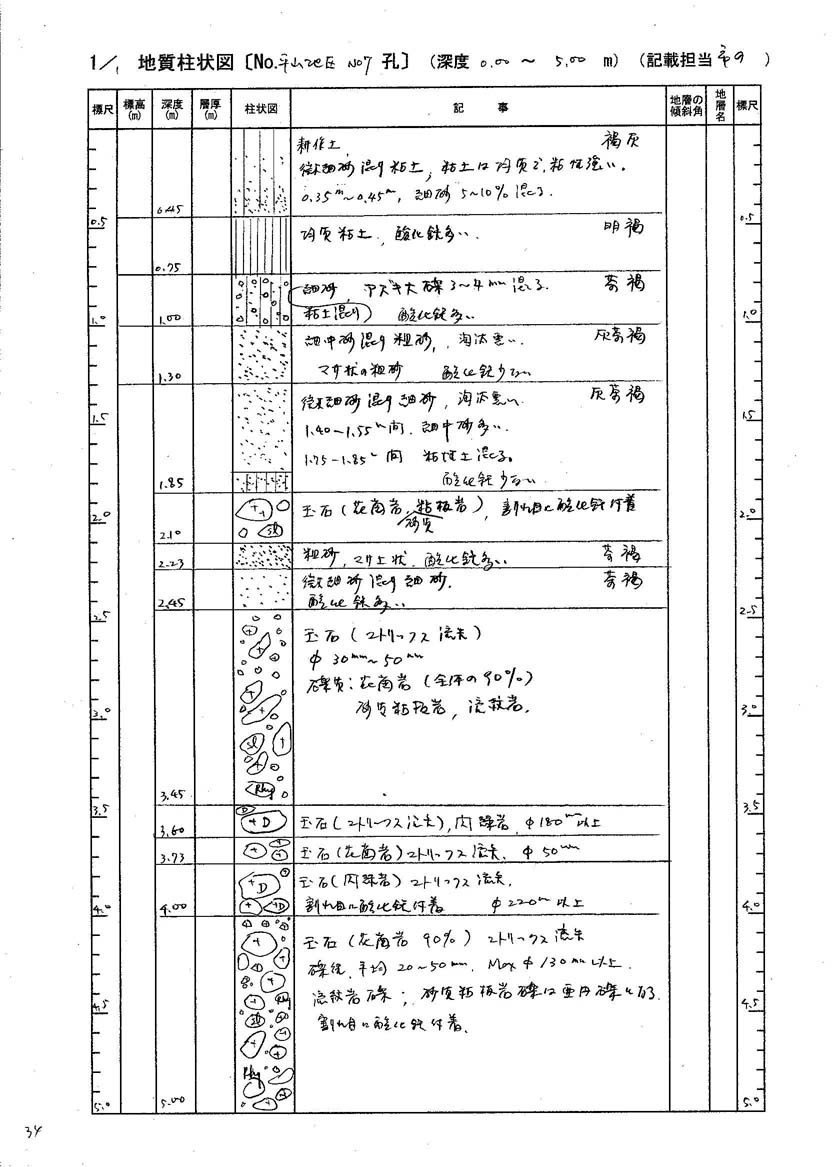 1/1 地質柱状図〔No.平山地区 No7 孔〕（深度 0.00 ～ 5.00 m）（記載担当 ）
標尺 標高(m) 深度(m) 層厚(m) 柱状図 記事 地層の傾斜角 地層名 標尺
耕作土 褐灰
微細砂混り粘土, 粘土は均質で, 粘性強い.
0.35m～0.45m, 細砂 5～10% 混る
0.45
0.5 0.5
均質粘土, 酸化鉄多い. 明褐
0.75
細砂, アズキ大礫 3～4mm 混る 茶褐
粘土混り） 酸化鉄多い
1.00
1.0 1.0
細中砂混り粗砂, 淘汰悪い. 灰茶褐
マサ状の粗砂 酸化鉄少ない
1.30
微細砂混り細砂, 淘汰悪い 灰茶褐
1.5 1.5
1.40～1.55m間, 細中砂多い.
1.75～1.85m間 粘性土混る。
酸化鉄少ない
1.85
玉石（花崗岩, 粘板岩）, 割れ目に酸化鉄付着
砂質
2.0 2.0
sl
2.10
粗砂, マサ土状, 酸化鉄多い 茶褐
2.23
微細砂混り細砂. 茶褐
酸化鉄多い
2.45
2.5 2.5
玉石（マトリックス流失）
φ 30mm～50mm
礫質：花崗岩（全体の90%）
砂質粘板岩, 流紋岩.
3.0 3.0
sl
Rhy
3.45
3.5 3.5
D
玉石（マトリックス流失）, 閃緑岩 φ180mm以上
3.60
玉石（花崗岩）マトリックス流失. φ50mm
3.73
玉石（閃緑岩）マトリックス流失.
D
割れ目に酸化鉄付着 φ220mm以上
4.00
4.0 4.0
玉石（花崗岩 90%） マトリックス流失
礫径, 平均20～50mm, Max φ130mm以上.
流紋岩礫；砂質粘板岩礫は亜円礫になる.
割れ目に酸化鉄付着.
Rhy
4.5 4.5
sl
Rhy
5.00
5.0 5.0
34